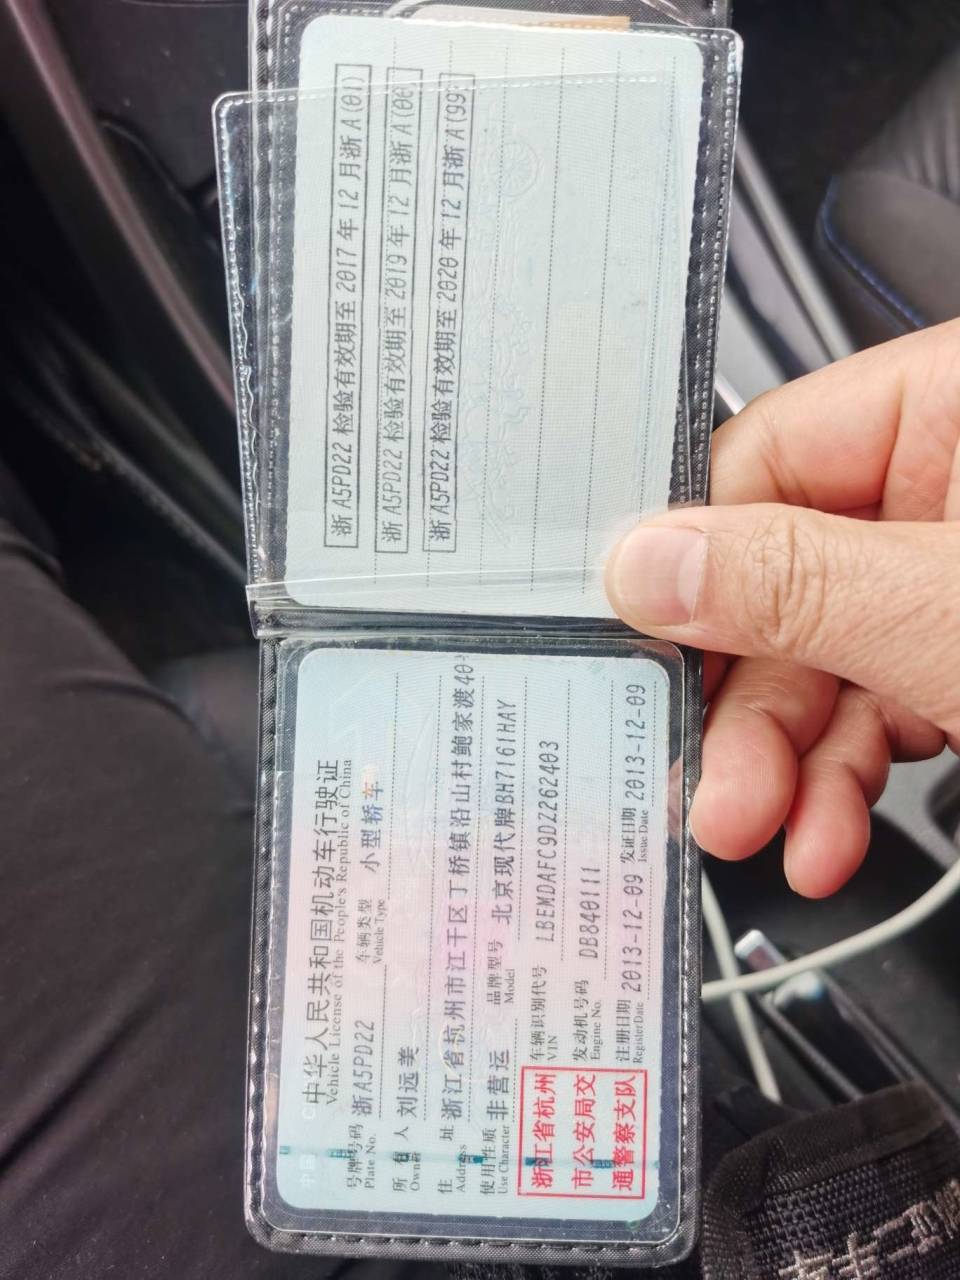 浙A5PD22 检验有效期至2017年12月浙A(01)
浙A5PD22 检验有效期至2019年12月浙A(00)
浙A5PD22 检验有效期至2020年12月浙A(99)
中华人民共和国机动车行驶证
Vehicle License of the People's Republic of China
号牌号码 浙A5PD22 车辆类型 小型轿车
Plate No. Vehicle Type
所有人 刘远美
Owner
住址 浙江省杭州市江干区丁桥镇沿山村鲍家渡40-
Address
使用性质 非营运 品牌型号 北京现代牌BH7161HAY
Use Character Model
浙江省杭州
市公安局交
通警察支队
车辆识别代号 LBEMDAFC9DZ262403
VIN
发动机号码 DB840111
Engine No.
注册日期 2013-12-09 发证日期 2013-12-09
Register Date Issue Date